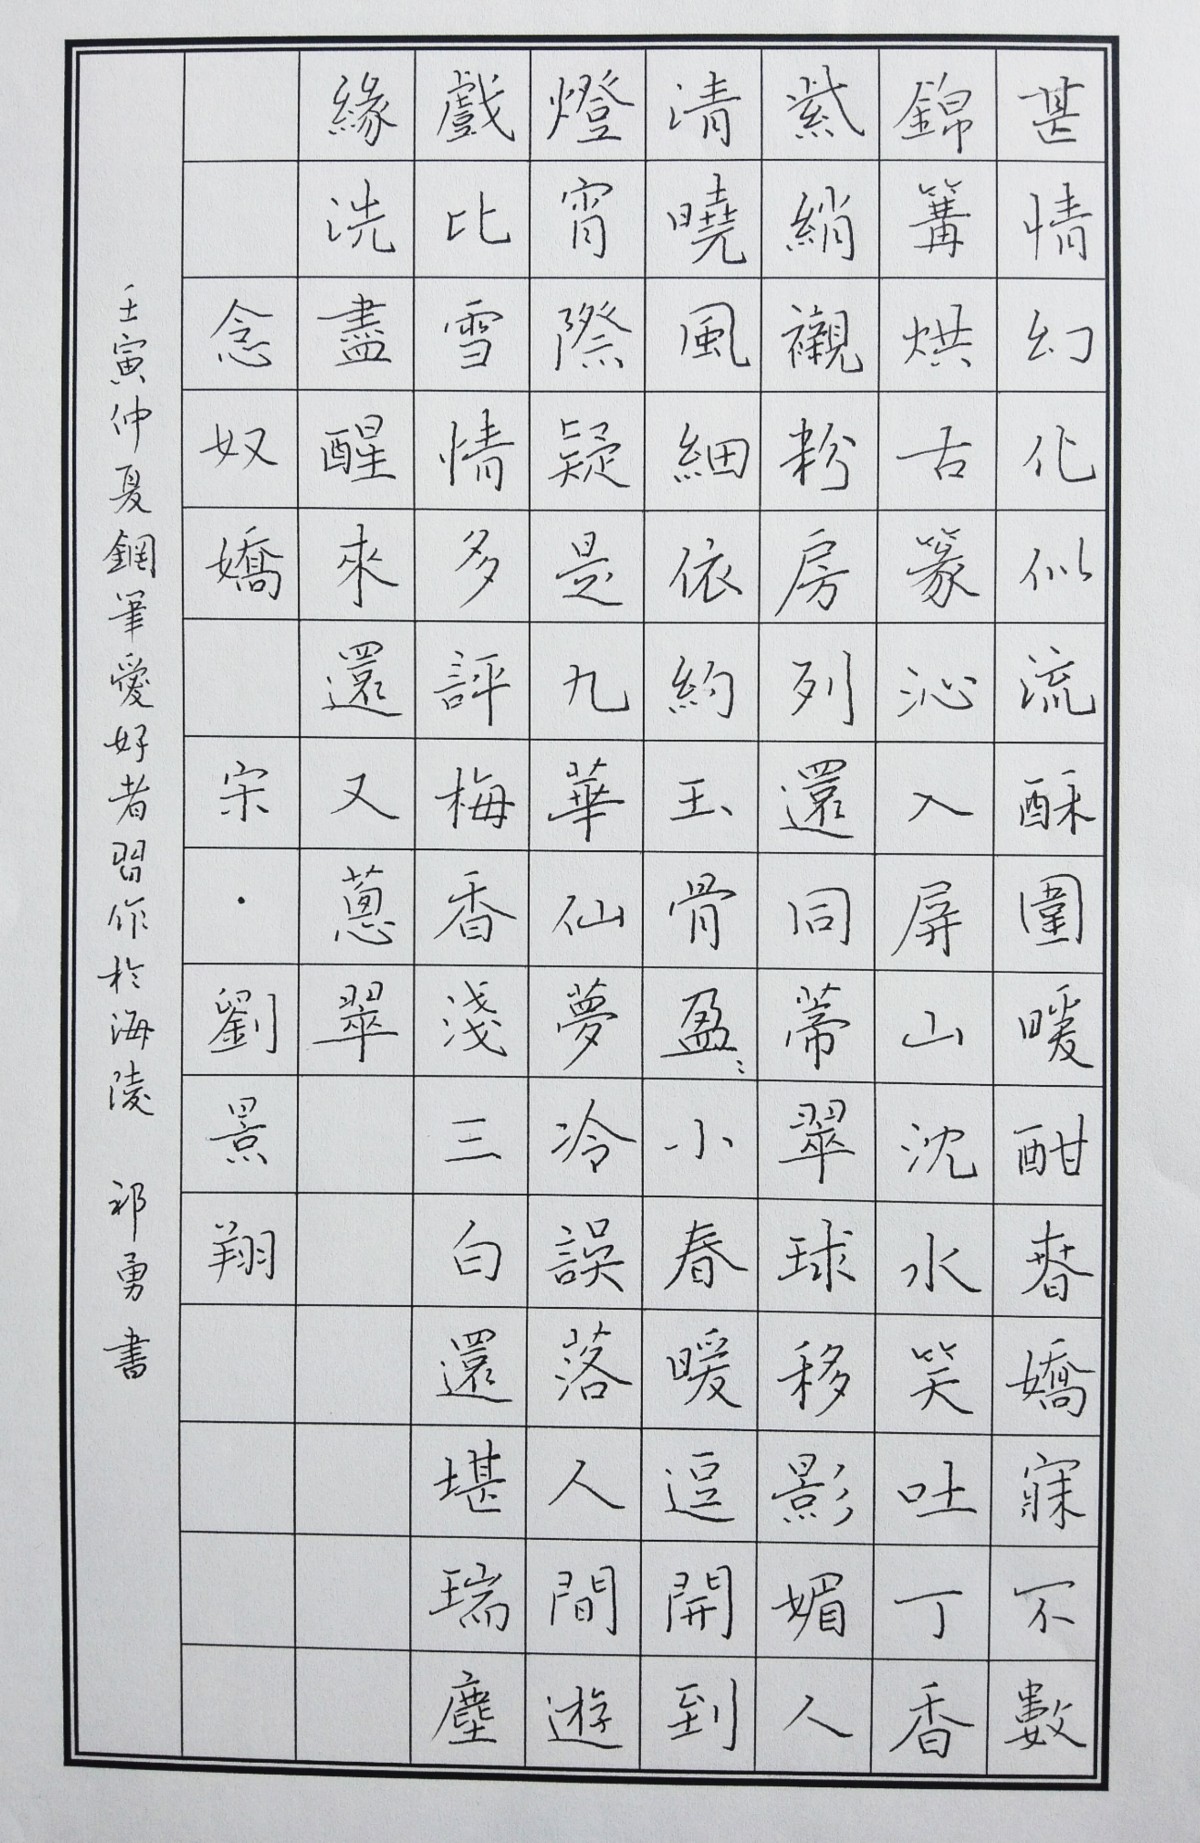 甚情幻化似流酥圍暖酣春嬌寐不數
錦篝烘古篆沁入屏山沈水笑吐丁香
紫綃襯粉房列還同蒂翠球移影媚人
清曉風細依約玉骨盈〻小春暖逗開到
燈宵際疑是九華仙夢冷誤落人間遊
戲比雪情多評梅香淺三白還堪瑞塵
緣洗盡醒來還又蔥翠
念奴嬌 宋·劉景翔
壬寅仲夏鋼筆愛好者習作於海陵 祁勇書